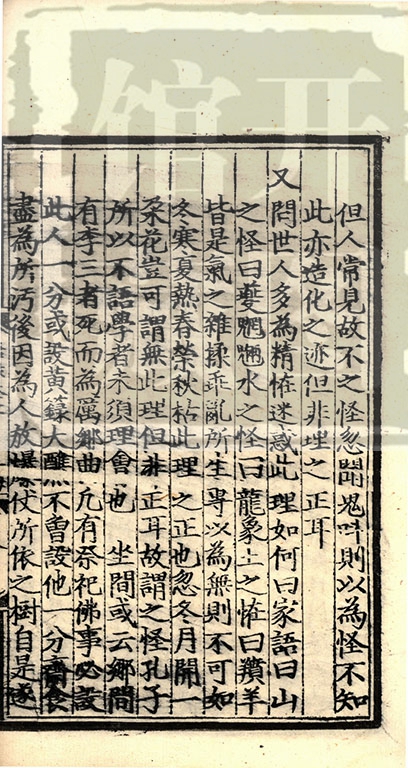 但人常見故不之怪忽聞鬼叫則以為怪不知
此亦造化之迹但非理之正耳
又問世人多為精恠迷惑此理如何曰家語曰山
之怪曰夔魍魎水之怪曰龍象土之恠曰羵羊
皆是氣之雜揉乖亂所生專以為無則不可如
冬寒夏熱春榮秋枯此理之正也忽冬月開一
朶花豈可謂無此理但非正耳故謂之怪孔子
所以不語學者未須理會也 坐間或云鄉間
有李三者死而為厲鄉曲凡有祭祀佛事必設
此人一分或設黃籙大醮不曾設他一分齋食
盡為所汚後因為人放爆仗所依之樹自是遂